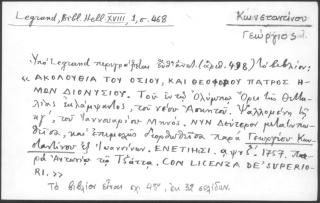 Legrand, Bibl. Hell XVIII, 1, σ. 468
Κωνσταντίνου
Γεώργιος
Ὑπὸ Legrand περιγράφεται (ἀριθ. 498) τὸ βιβλίον:
« ΑΚΟΛΟΥΘΙΑ ΤΟΥ ΟΣΙΟΥ, ΚΑΙ ΘΕΟΦΟΡΟΥ ΠΑΤΡΟΣ Η-
ΜΩΝ ΔΙΟΝΥΣΙΟΥ. Τοῦ ἐν τῷ Ὀλύμπῳ Ὄρει τῆς Θετ-
ταλίας ἐκλάμψαντος, τοῦ νέου Ἀσκητοῦ. Ψαλλομένη
τοῦ Ἰαννουαρίου Μηνός. ΝΥΝ Δεύτερον μετατυπω-
θεῖσα, καὶ ἐπιμελῶς διορθωθεῖσα παρὰ Γεωργίου Κων-
σταντίνου ἐξ Ἰωαννίνων. ΕΝΕΤΙΗΣΙ. αψνζ. 1757. Πα-
ρὰ Ἀντωνίῳ τῷ Τζάττᾳ. CON LICENZA DE' SUPERIO-
RI. »
Τὸ βιβλίον εἶναι σχ. 4ον, ἐκ 32 σελίδων.